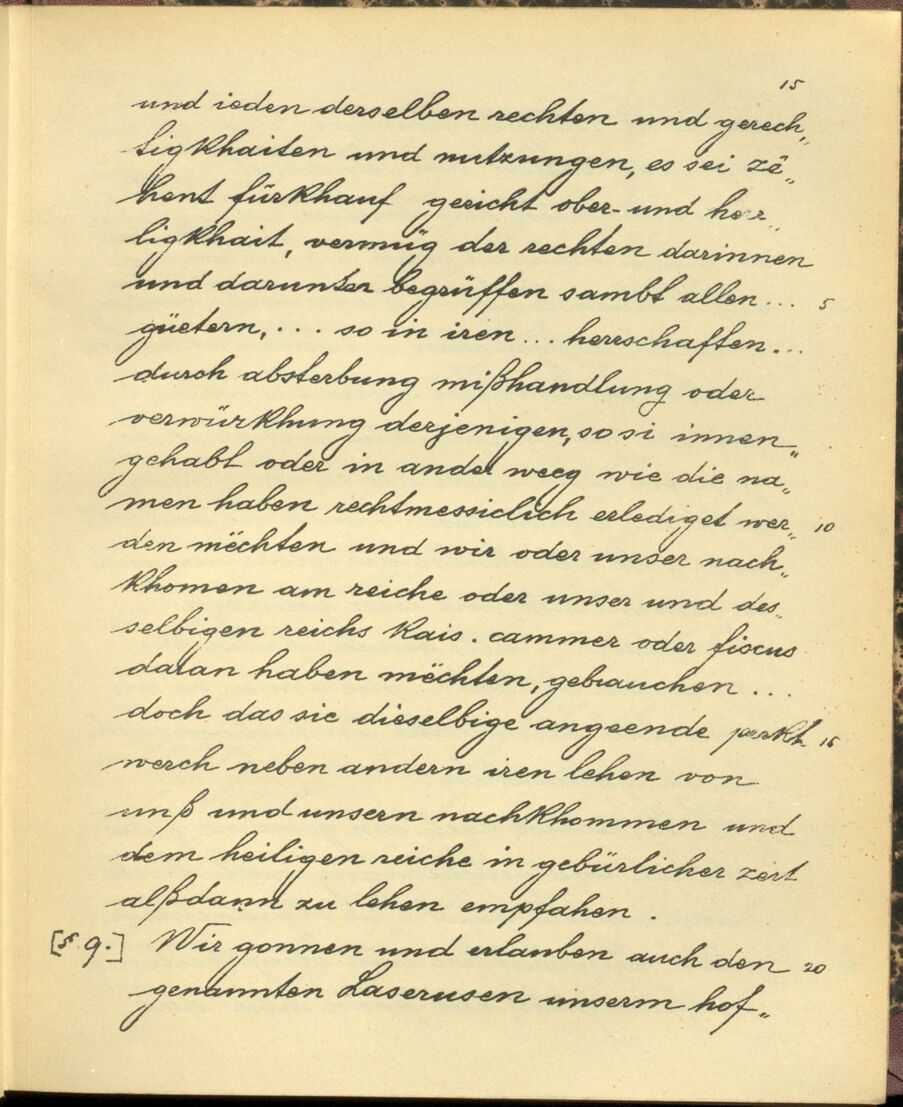 15
und ieden derselben rechten und gerech„
tigkhaiten und nutzungen, es sei zë„
hent fürkhauf gericht ober- und herr„
ligkhait, vermüg der rechten darinnen
und darunter begrüffen sambt allen ... 5
güetern, ... so in iren ... herrschaften ...
durch absterbung mißhandlung oder
verwürkhung derjenigen, so si innen„
gehabt oder in ander weeg wie die na„
men haben rechtmessiclich erlediget wer„ 10
den mëchten und wir oder unser nach„
khomen am reiche oder unser und des„
selbigen reichs kais. cammer oder fiscus
daran haben mëchten, gebrauchen ...
doch das sie dieselbige angeende perkh 15
werch neben andern iren lehen von
unß und unsern nachkhommen und
dem heiligen reiche in gebürlicher zeit
alßdann zu lehen empfahen.
[§. 9.] Wir gonnen und erlauben auch den 20
genannten Laserusen unserm hof„